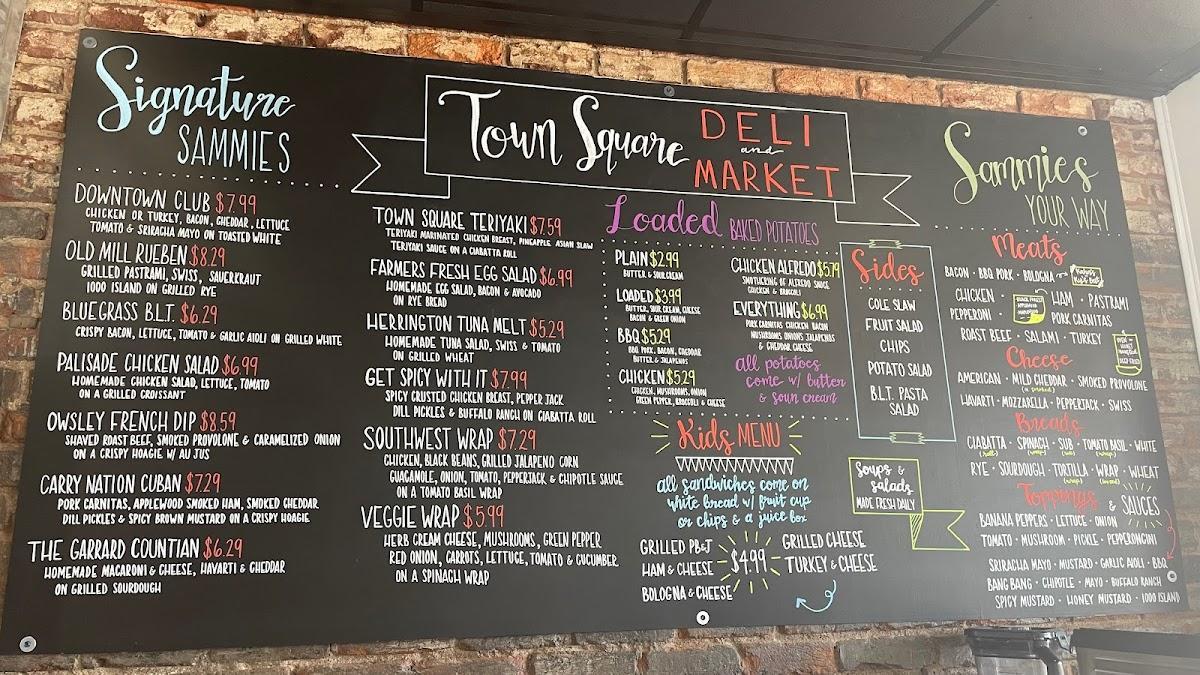 Signature
SAMMIES
DOWNTOWN CLUB $7.99
CHICKEN OR TURKEY, BACON, CHEDDAR, LETTUCE
TOMATO & SRIRACHA MAYO ON TOASTED WHITE
OLD MILL RUEBEN $8.29
GRILLED PASTRAMI, SWISS, SAUERKRAUT
1000 ISLAND ON GRILLED RYE
BLUEGRASS B.L.T. $6.29
CRISPY BACON, LETTUCE, TOMATO & GARLIC AIOLI ON GRILLED WHITE
PALISADE CHICKEN SALAD $6.99
HOMEMADE CHICKEN SALAD, LETTUCE, TOMATO
ON A GRILLED CROISSANT
OWSLEY FRENCH DIP $8.59
SHAVED ROAST BEEF, SMOKED PROVOLONE & CARAMELIZED ONION
ON A CRISPY HOAGIE W/ AU JUS
CARRY NATION CUBAN $7.29
PORK CARNITAS, APPLEWOOD SMOKED HAM, SMOKED CHEDDAR
DILL PICKLES & SPICY BROWN MUSTARD ON A CRISPY HOAGIE
THE GARRARD COUNTIAN $6.29
HOMEMADE MACARONI & CHEESE, HAVARTI & CHEDDAR
ON GRILLED SOURDOUGH
Town Square DELI
and
MARKET
TOWN SQUARE TERIYAKI $7.59
TERIYAKI MARINATED CHICKEN BREAST, PINEAPPLE ASIAN SLAW
TERIYAKI SAUCE ON A CIABATTA ROLL
FARMERS FRESH EGG SALAD $6.99
HOMEMADE EGG SALAD, BACON & AVOCADO
ON RYE BREAD
HERRINGTON TUNA MELT $5.29
HOMEMADE TUNA SALAD, SWISS & TOMATO
ON GRILLED WHEAT
GET SPICY WITH IT $7.99
SPICY CRUSTED CHICKEN BREAST, PEPPER JACK
DILL PICKLES & BUFFALO RANCH ON CIABATTA ROLL
SOUTHWEST WRAP $7.29
CHICKEN, BLACK BEANS, GRILLED JALAPENO CORN
GUACAMOLE, ONION, TOMATO, PEPPERJACK & CHIPOTLE SAUCE
ON A TOMATO BASIL WRAP
VEGGIE WRAP $5.99
HERB CREAM CHEESE, MUSHROOMS, GREEN PEPPER
RED ONION, CARROTS, LETTUCE, TOMATO & CUCUMBER
ON A SPINACH WRAP
Loaded BAKED POTATOES
PLAIN $2.99
BUTTER & SOUR CREAM
LOADED $3.99
BUTTER, SOUR CREAM, CHEESE
BACON & GREEN ONION
BBQ $5.29
BBQ PORK, BACON, CHEDDAR
BUTTER & JALAPENOS
CHICKEN $5.29
CHICKEN, MUSHROOMS, ONION
GREEN PEPPER, BROCCOLI & CHEESE
CHICKEN ALFREDO $5.79
SMOTHERING OF ALFREDO SAUCE
CHICKEN & BROCCOLI
EVERYTHING $6.99
PORK CARNITAS CHICKEN BACON
MUSHROOMS ONIONS JALAPENOS
& CHEDDAR CHEESE
all potatoes
come w/ butter
& sour cream
Kids MENU
all sandwiches come on
white bread w/ fruit cup
or chips & a juice box
GRILLED PB&J
HAM & CHEESE
BOLOGNA & CHEESE
$4.99
GRILLED CHEESE
TURKEY & CHEESE
Sides
COLE SLAW
FRUIT SALAD
CHIPS
POTATO SALAD
B.L.T. PASTA
SALAD
Soups &
Salads
MADE FRESH DAILY
Sammies
YOUR WAY
Meats
BACON · BBQ PORK · BOLOGNA
CHICKEN HAM · PASTRAMI
PEPPERONI PORK CARNITAS
ROAST BEEF · SALAMI · TURKEY
Cheese
AMERICAN · MILD CHEDDAR · SMOKED PROVOLONE
(or smoked)
HAVARTI · MOZZARELLA · PEPPERJACK · SWISS
Breads
CIABATTA · SPINACH · SUB · TOMATO BASIL · WHITE
(roll) (wrap) (wrap)
RYE · SOURDOUGH · TORTILLA · WRAP · WHEAT
(wrap) (bread)
Toppings & SAUCES
BANANA PEPPERS · LETTUCE · ONION
TOMATO · MUSHROOM · PICKLE · PEPPERONCINI
SRIRACHA MAYO · MUSTARD · GARLIC AIOLI · BBQ
BANG BANG · CHIPOTLE · MAYO · BUFFALO RANCH
SPICY MUSTARD · HONEY MUSTARD · 1000 ISLAND